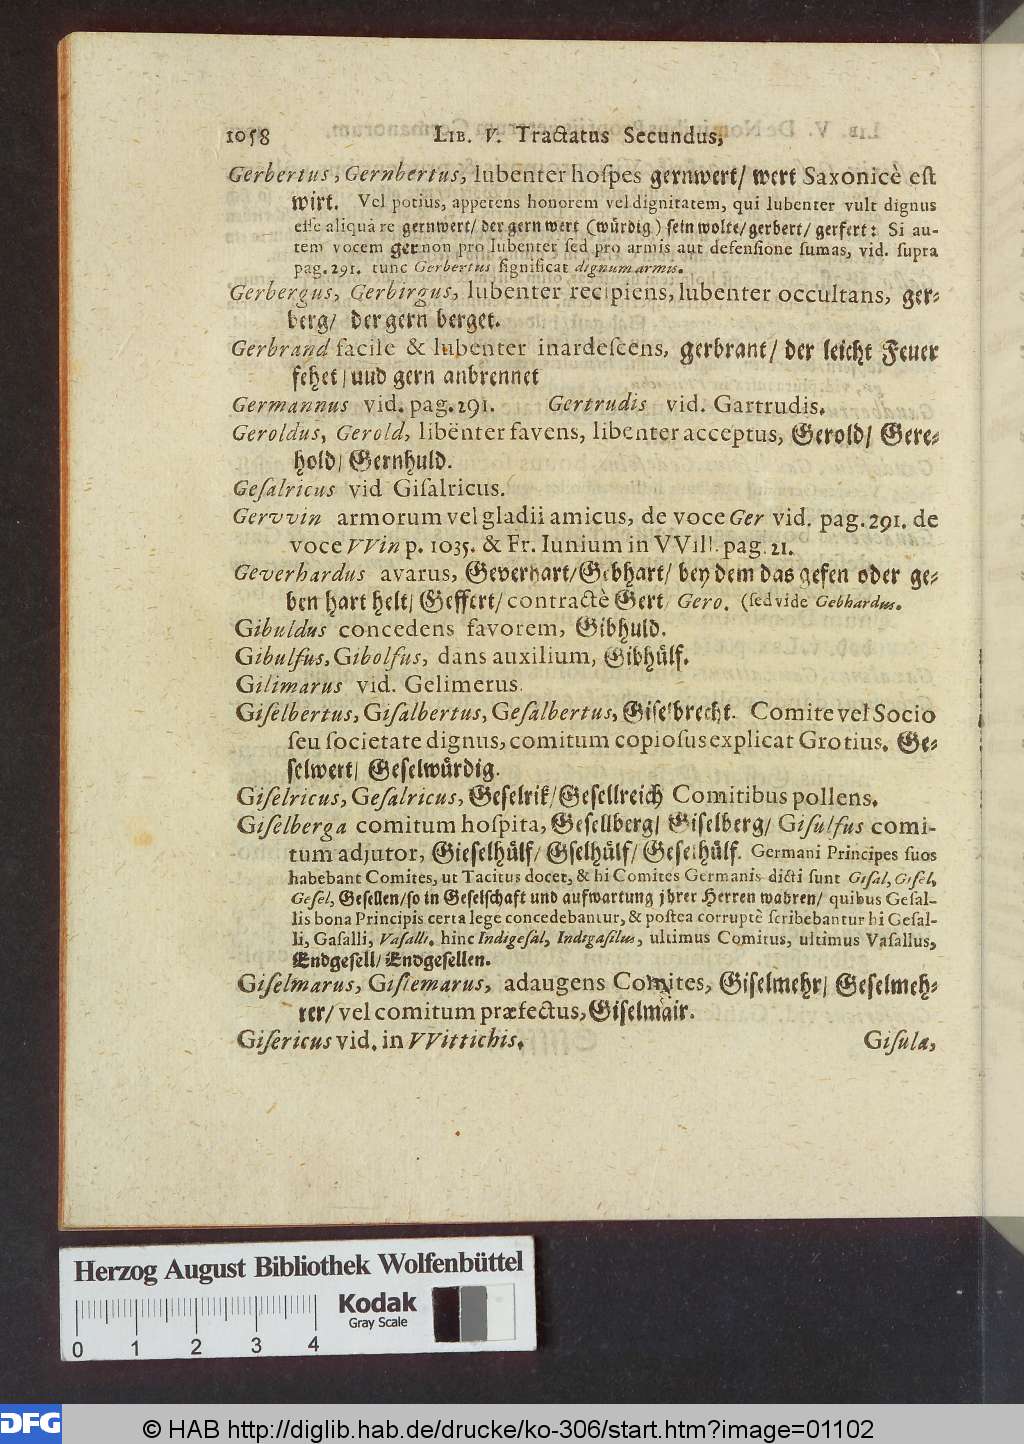 1058 LIB. V. Tractatus Secundus,
Gerbertus, Gernbertus, lubenter hoſpes gernwert/ wert Saxonicè eſt
wirt. Vel potiùs, appetens honorem vel dignitatem, qui lubenter vult dignus
eſſe aliquâ re gernwert/ der gern wert (wuͤrdig) ſein wolte/ gerbert/ gerfert: Si au-
tem vocem ger non pro lubenter ſed pro armis aut defenſione ſumas, vid. ſupra
pag. 291. tunc Gerbertus ſignificat dignum armis.
Gerbergus, Gerbirgus, lubenter recipiens, lubenter occultans, ger-
berg/ der gern berget.
Gerbrand facile & lubenter inardeſcens, gerbrant/ der leicht Feuer
fehet/ uud gern anbrennet
Germannus vid. pag. 291. Gertrudis vid. Gartrudis.
Geroldus, Gerold, libenter favens, libenter acceptus, Gerold/ Gere-
hold/ Gernhuld.
Geſalricus vid Giſalricus.
Gervvin armorum vel gladii amicus, de voce Ger vid. pag. 291. de
voce VVin p. 1035. & Fr. Iunium in VVill. pag. 21.
Geverhardus avarus, Geverhart/ Gebhart/ bey dem das gefen oder ge-
ben hart helt/ Geffert/ contractè Gert/ Gero. (ſed vide Gebhardus.
Gibuldus concedens favorem, Gibhuld.
Gibulfus, Gibolfus, dans auxilium, Gibhuͤlf.
Gilimarus vid. Gelimerus.
Giſelbertus, Giſalbertus, Geſalbertus, Giſelbrecht. Comite vel Socio
ſeu ſocietate dignus, comitum copioſus explicat Grotius. Ge-
ſelwert/ Geſelwuͤrdig.
Giſelricus, Geſalricus, Geſelrik/ Geſellreich Comitibus pollens.
Giſelberga comitum hoſpita, Geſellberg/ Giſelberg/ Giſulfus comi-
tum adjutor, Gieſelhuͤlf/ Gſelhuͤlf/ Geſelhuͤlf. Germani Principes ſuos
habebant Comites, ut Tacitus docet, & hi Comites Germanis dicti ſunt Giſal, Giſel,
Geſel, Geſellen/ ſo in Geſelſchaft und aufwartung jhrer Herren wahren/ quibus Geſal-
lis bona Principis certa lege concedebantur, & poſtea corruptè ſcribebantur hi Geſal-
li, Gaſalli, Vaſalli. hinc Indigeſal, Indigaſilus, ultimus Comitus, ultimus Vaſallus,
Endgeſell/ Endgeſellen.
Giſelmarus, Giſlemarus, adaugens Comites, Giſelmehr/ Geſelmeh-
rer/ vel comitum præfectus, Giſelmair.
Giſericus vid. in VVittichis. Giſula,
Herzog August Bibliothek Wolfenbüttel
Kodak
Gray Scale
0 1 2 3 4
DFG © HAB http://diglib.hab.de/drucke/ko-306/start.htm?image=01102